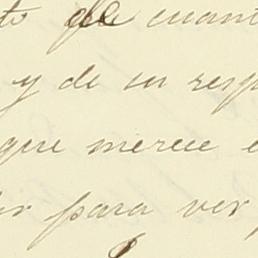 de cuant
y de su resp
que merece
para ver